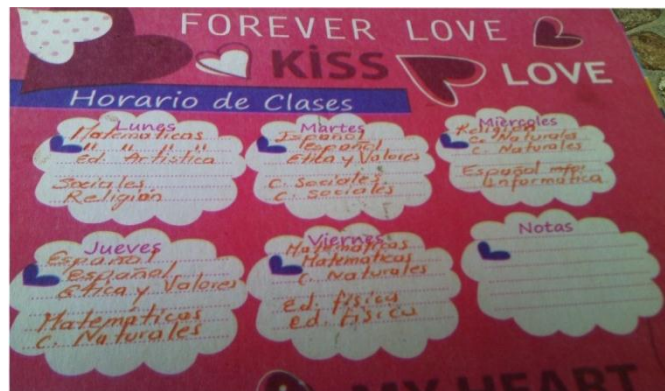 FOREVER LOVE
KiSS
LOVE
Horario de Clases
Lunes
Matematicas
" " " "
Ed. Artistica
Sociales
Religión
Martes
Español
Español
Etica y Valores
C. Sociales
C. Sociales
Miércoles
Religión
C. Naturales
C. Naturales
Español
Informatica
Jueves
Español
Español
Etica y Valores
Matemáticas
C. Naturales
Viernes
Matematicas
Matematicas
C. Naturales
ed. física
ed. física
Notas
MY HEART